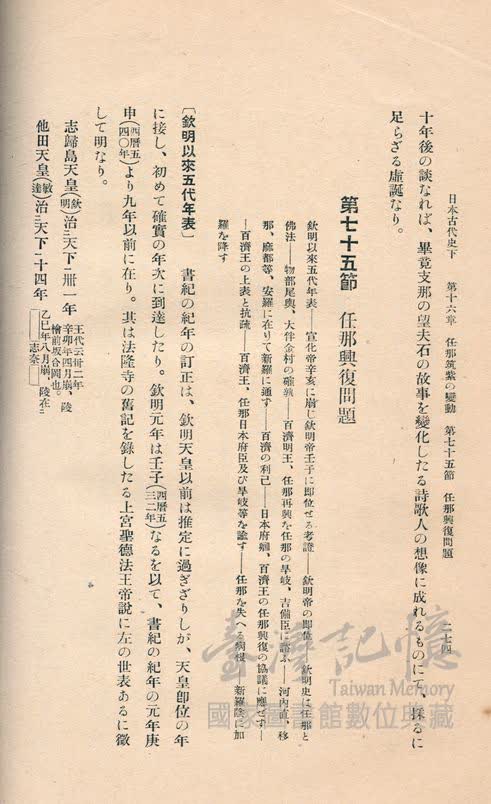 日本古代史下　第十六章　任那筑紫の變動　第七十五節　任那興復問題　二七四
十年後の談なれば、畢竟支那の望夫石の故事を變化したる詩歌人の想像に成れるものにて、採るに
足らざる虛誕なり。
第七十五節　任那興復問題
欽明以來五代年表——宣化帝辛亥に崩じ欽明帝壬子に即位せる考證——欽明帝の即位——欽明史は任那と
佛法——物部尾輿、大伴金村の確執——百濟明王、任那再興を任那の旱岐、吉備臣に諮ふ——河內直、移
那、麻都等、安羅に在りて新羅に通ず——百濟の利己——日本府頑、百濟王の任那興復の協議に應ぜず—
—百濟王の上表と抗疏——百濟王、任那日本府臣及び旱岐等を諭す——任那を失へる病根——新羅陰に加
羅を降す
〔欽明以來五代年表〕　書紀の紀年の訂正は、欽明天皇以前は推定に過ぎざりしが、天皇即位の年
に接し、初めて確實の年次に到達したり。欽明元年は壬子(西曆五三二年)なるを以て、書紀の紀年の元年庚
申(西曆五四〇年)より九年以前に在り。其は法隆寺の舊記を錄したる上宮聖德法王帝說に左の世表あるに徵
して明なり。
志歸島天皇(欽明)治二天下一卅一年　王代云卅二年
辛卯年四月崩、陵
檜前坂合岡也。
他田天皇(敏達)治二天下一十四年　乙巳年八月崩、陵在二
志奈
臺灣記憶
Taiwan Memory
國家圖書館數位典藏